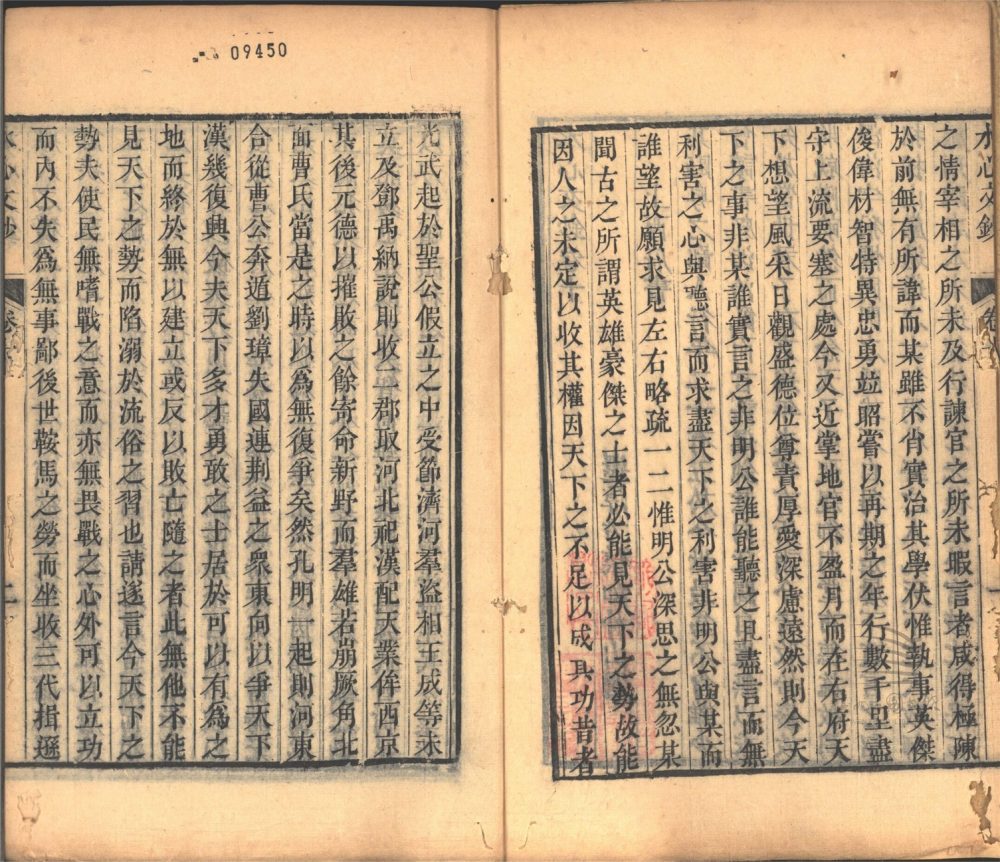 09450
水心文鈔
之情宰相之所未及行諫官之所未暇言者咸得極陳
於前無有所諱而某雖不肖實治其學伏惟執事英傑
俊偉材智特異忠勇竝昭嘗以再期之年行數千里盡
守上流要塞之處今又近掌地官不盈月而在右府天
下想望風采日觀盛德位尊責厚愛深慮遠然則今天
下之事非某誰實言之非明公誰能聽之且盡言而無
利害之心與聽言而求盡天下之利害非明公與某而
誰望故願求見左右略疏一二惟明公深思之無忽某
聞古之所謂英雄豪傑之士者必能見天下之勢故能
因人之未定以收其權因天下之不足以成其功昔者
光武起於聖公假立之中受節濟河羣盜相王成等未
立及鄧禹納說則收二郡取河北祀漢配天業侔西京
其後元德以摧敗之餘寄命新野而羣雄若崩厥角北
面曹氏當是之時以爲無復爭矣然孔明一起則河東
合從曹公奔遁劉璋失國連荆益之衆東向以爭天下
漢幾復興今夫天下多才勇敢之士居於可以有爲之
地而終於無以建立或反以敗亡隨之者此無他不能
見天下之勢而陷溺於流俗之習也請遂言今天下之
勢夫使民無嗜戰之意而亦無畏戰之心外可以立功
而內不失爲無事鄙後世鞍馬之勞而坐收三代揖遜
水心文鈔